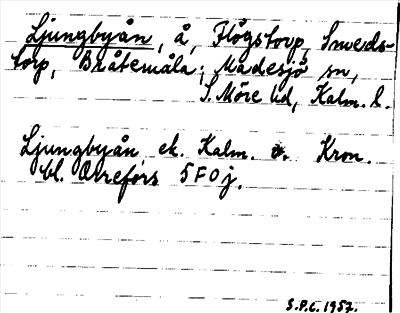 Ljungbyån, å, Flögstorp, Smeds-
torp, Bråtemåla; Madesjö sn,
S. Möre hd, Kalm. l.
Ljungbyån ek. Kalm. o. Kron.
bl. Orrefors 5F0j.
S.P.C. 1957.